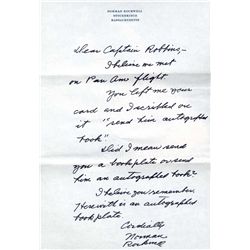 NORMAN ROCKWELL
STOCKBRIDGE
MASSACHUSETTS
Dear Captain Robbins,-
I believe we met
on Pan Am flight
You left me your
card and I scribbled on
it "send him autographed
book"
Did I mean send
you a bookplate or send
him an autographed book?
I believe you remember.
Herewith is an autographed
bookplate.
Cordially
Norman
Rockwell